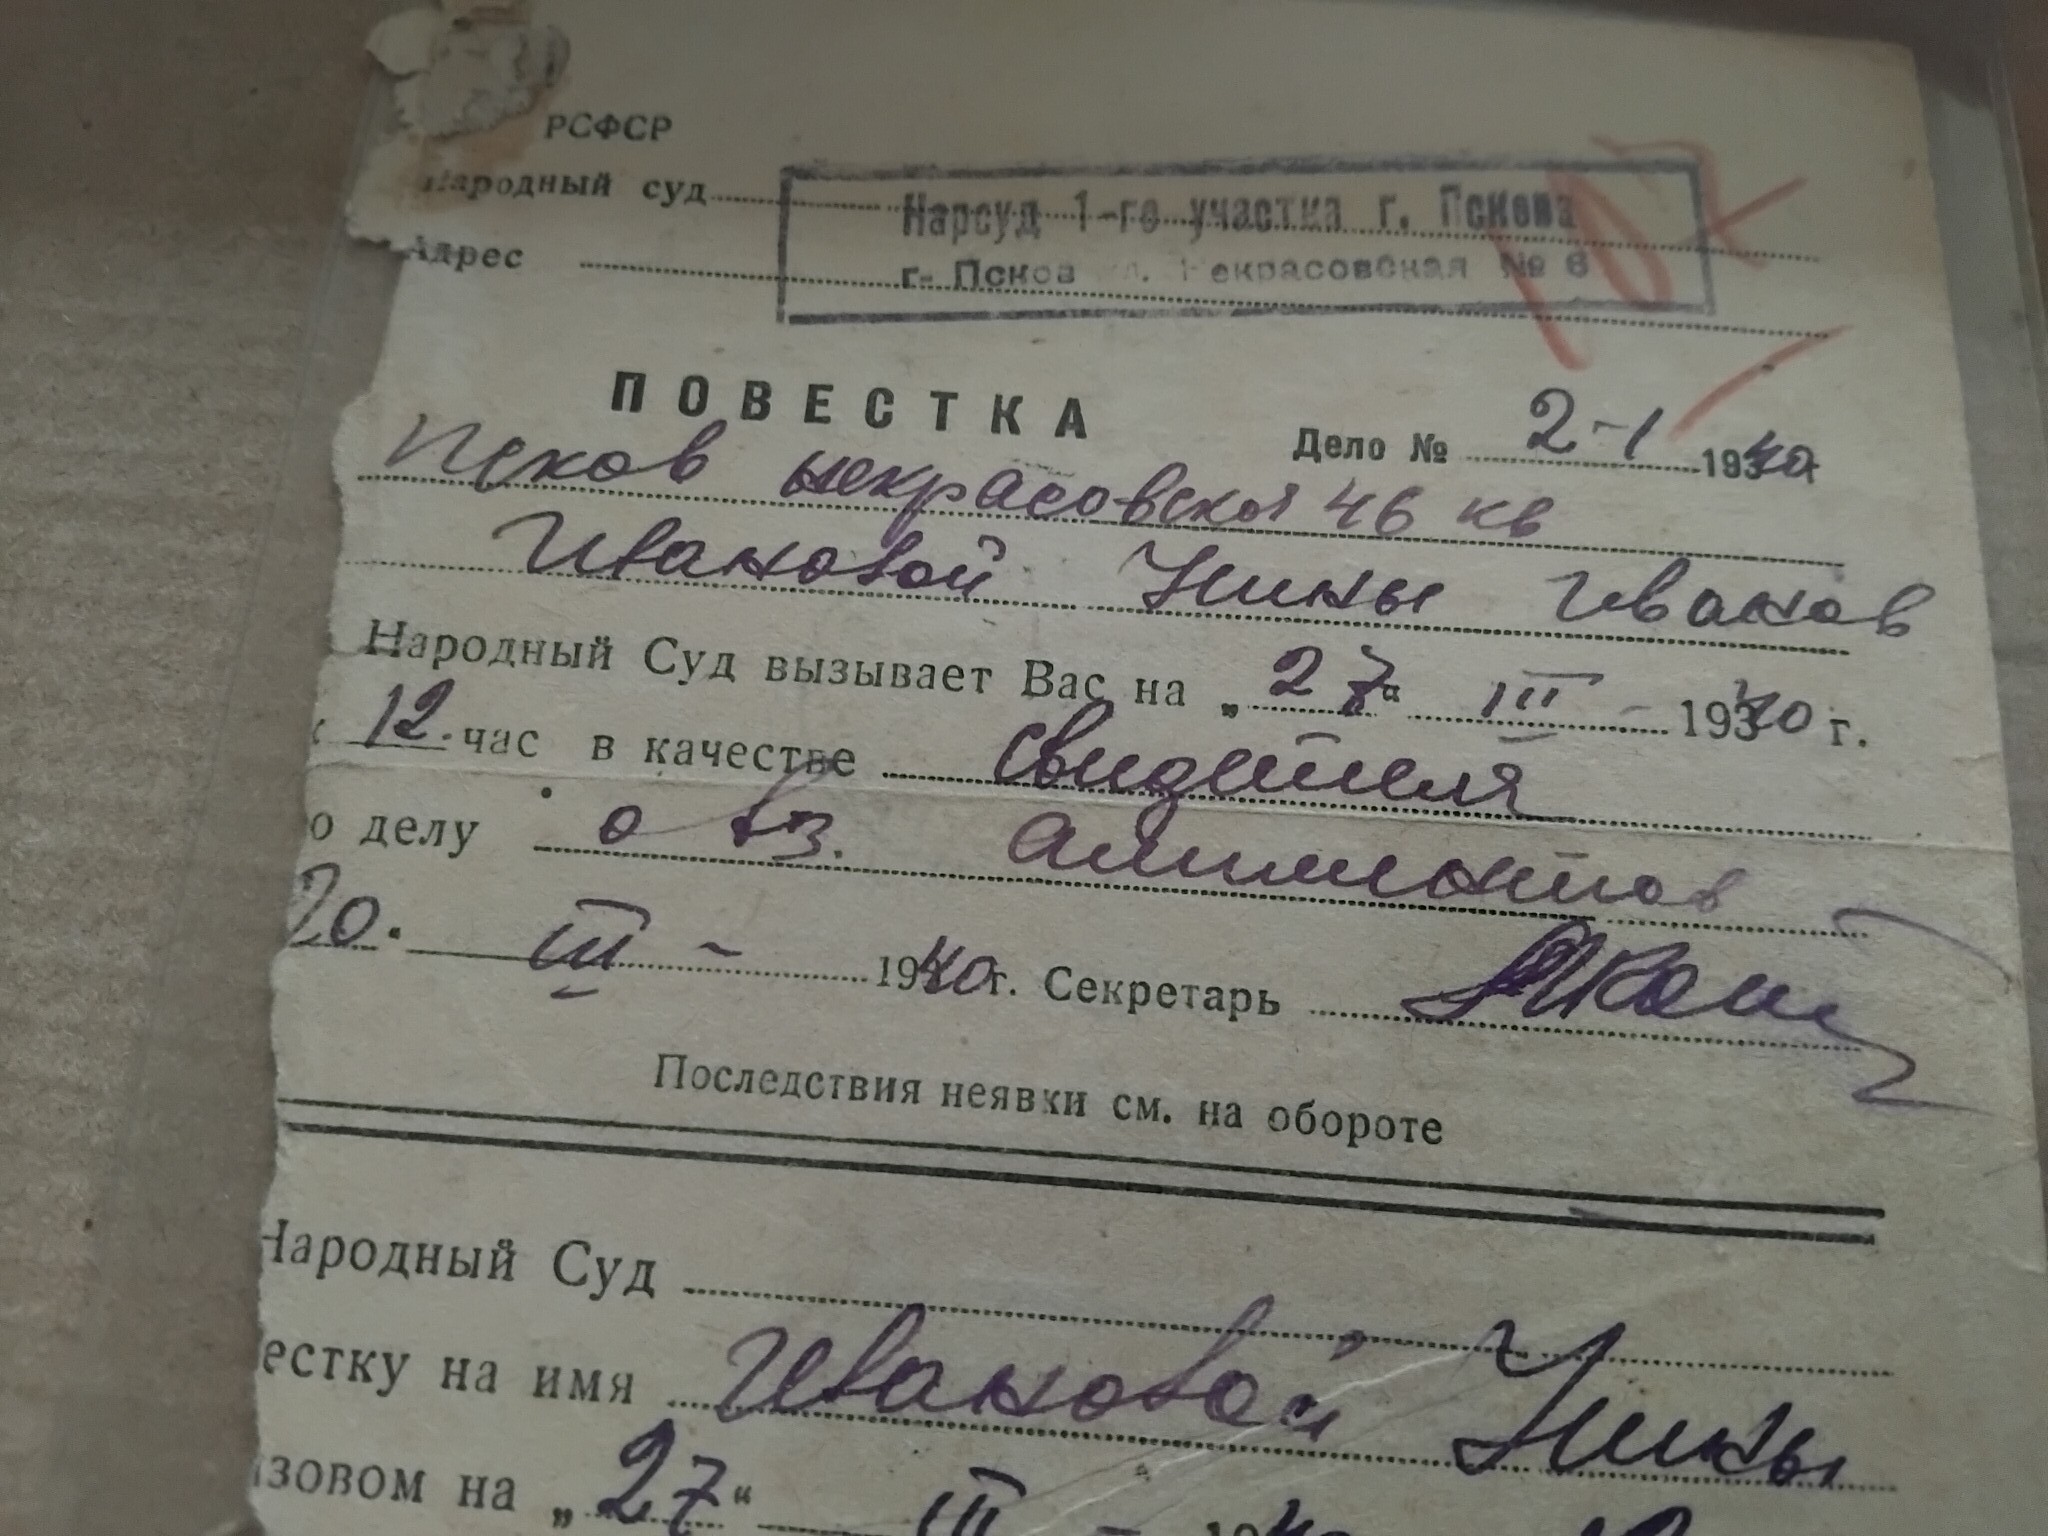 РСФСР
Народный суд
Нарсуд 1-го участка г. Пскова
Адрес
г. Псков Некрасовская № 6
107
ПОВЕСТКА
Дело № 2-1 1940
Псков Некрасовская 46 кв
Ивановой Нины Иванов
Народный Суд вызывает Вас на „27“ III - 1940 г.
к 12. час в качестве свидетеля
о делу о вз. алиментов
20. III - 1940 г. Секретарь
Последствия неявки см. на обороте
Народный Суд
естку на имя Ивановой Нины
ызовом на „27“ III - 1940